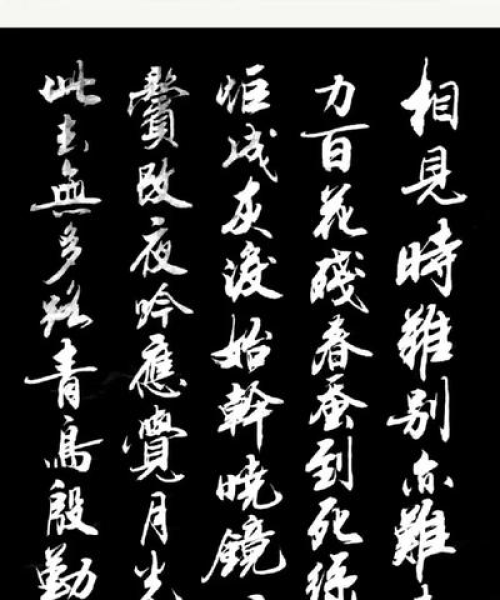 相見時難别亦難
力百花殘春蚕到死絲
炬成灰淚始幹曉鏡
鬢改夜吟應覺月光
此去無多路青鳥殷勤